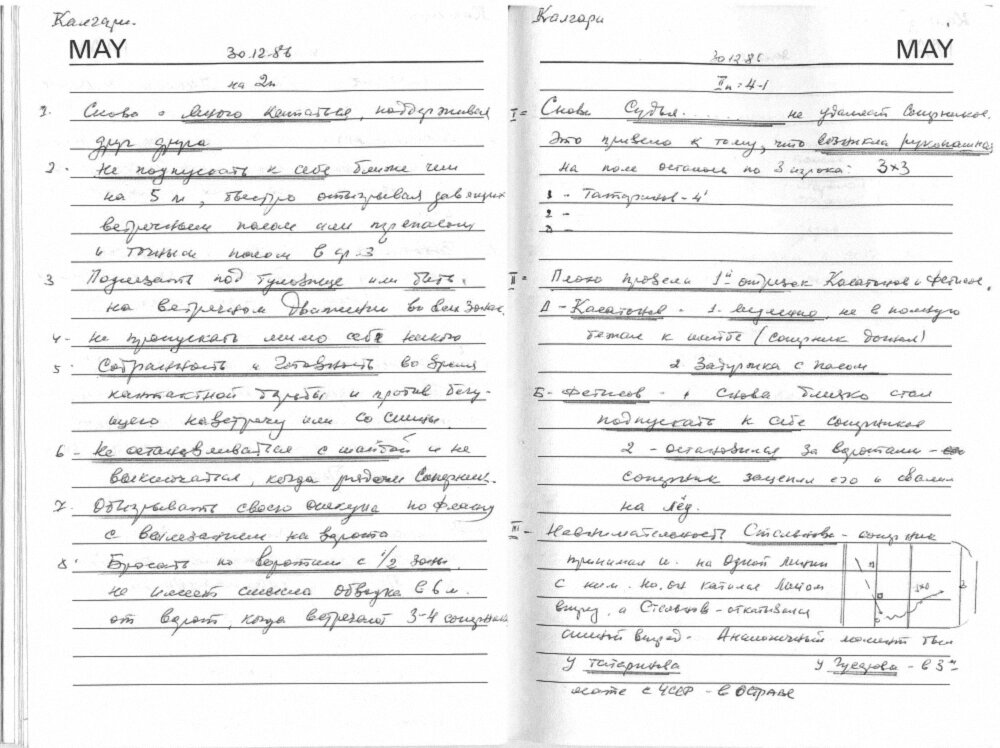 Калгари.
MAY
30.12.86
на 2п
1. Снова - много кататься, поддерживая
друг друга
2. Не подпускать к себе ближе чем
на 5 м, быстро отыгрывая давящих
встречным пасом или перепасом
и точным пасом в ср. з
3 Подлезать под туловище или бить
на встречном движении во всех зонах.
4 - не пропускать мимо себя никого
5 Собранность и готовность во время
контактной борьбы и против бегу-
щего навстречу или со спины.
6 - Не останавливаться с шайбой и не
выключаться, когда рядом соперник.
7. Обыгрывать своего опекуна по флангу
с вылезанием на ворота
8. Бросать по воротам с 1/2 зоны
не имеет смысла обводка в 6 м.
от ворот, когда встречают 3-4 соперника
Калгари
MAY
30.12.86
IIп = 4-1
I = Снова Судья. не удаляет соперников.
Это привело к тому, что возникла рукопашная
на поле осталось по 3 игрока: 3×3
1 - Татаринов - 4'
2 -
3 -
II = Плохо провели 1й отрезок Касатонов и Фетисов.
А - Касатонов - 1. медленно, не в полную
бежал к шайбе (соперник догнал)
2 Задержка с пасом
Б - Фетисов - 1 Снова близко стал
подпускать к себе соперников
2 - остановился за воротами -
соперник зацепил его и свалил
на лёд.
III - Невнимательность Стельнова - соперник
принимал ш. на одной линии
с ним. Но, он катился лицом
вперед, а Стельнов - откатывался
спиной вперед. Аналогичный момент был
у Татаринова у Гусарова - в 3м
матче с ЧССР - в Остраве
3×0